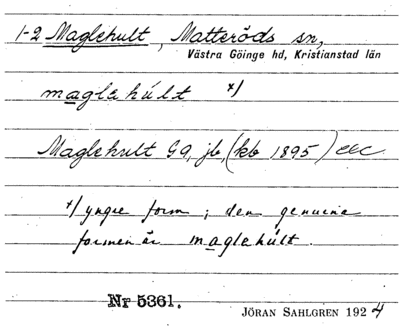 1-2 Maglehult, Matteröds sn,
Västra Göinge hd, Kristianstad län
maglehúlt x/
Maglehult GA, jb, (kb 1895) etc
x/ yngre form; den genuina
formen är maglehúlt.
Nr 5361.
JÖRAN SAHLGREN 1924